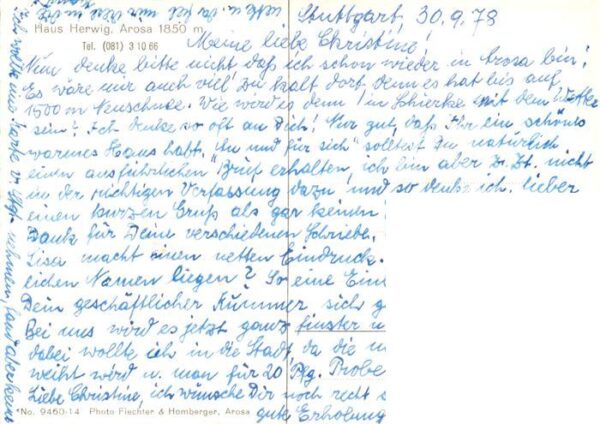 Stuttgart, 30.9.78
Haus Herwig, Arosa 1850 m
Tel. (081) 3 10 66
Meine liebe Christine!
Nun denke bitte nicht daß ich schon wieder in Arosa bin!
Es wäre mir auch viel zu kalt dort, denn es hat bis auf
1500 m Neuschnee. Wie wird es denn in Schierke mit dem Wetter
sein? Ich denke so oft an Dich! Nur gut, daß Ihr ein schönes
warmes Haus habt. "An und für sich" solltest Du natürlich
einen ausführlichen Brief erhalten, ich bin aber z. Zt. nicht
in der richtigen Verfassung dazu und so denke ich lieber
einen kurzen Gruß als gar keinen
Dank für Deine verschiedenen Schriebe.
Lisa macht einen netten Eindruck.
lichen Namen liegen? So eine Ein
Dein geschäftlicher Kummer sich g
Bei uns wird es jetzt ganz finster u
dabei wollte ich in die Stadt, da die
weiht wird u. man für 20 Pfg. Probe
Liebe Christine, ich wünsche Dir noch recht
gute Erholung
No. 9460-14 Photo Fiechter & Homberger, Arosa
Ich wollte eine Karte v. Stgt. nehmen, fand aber keine